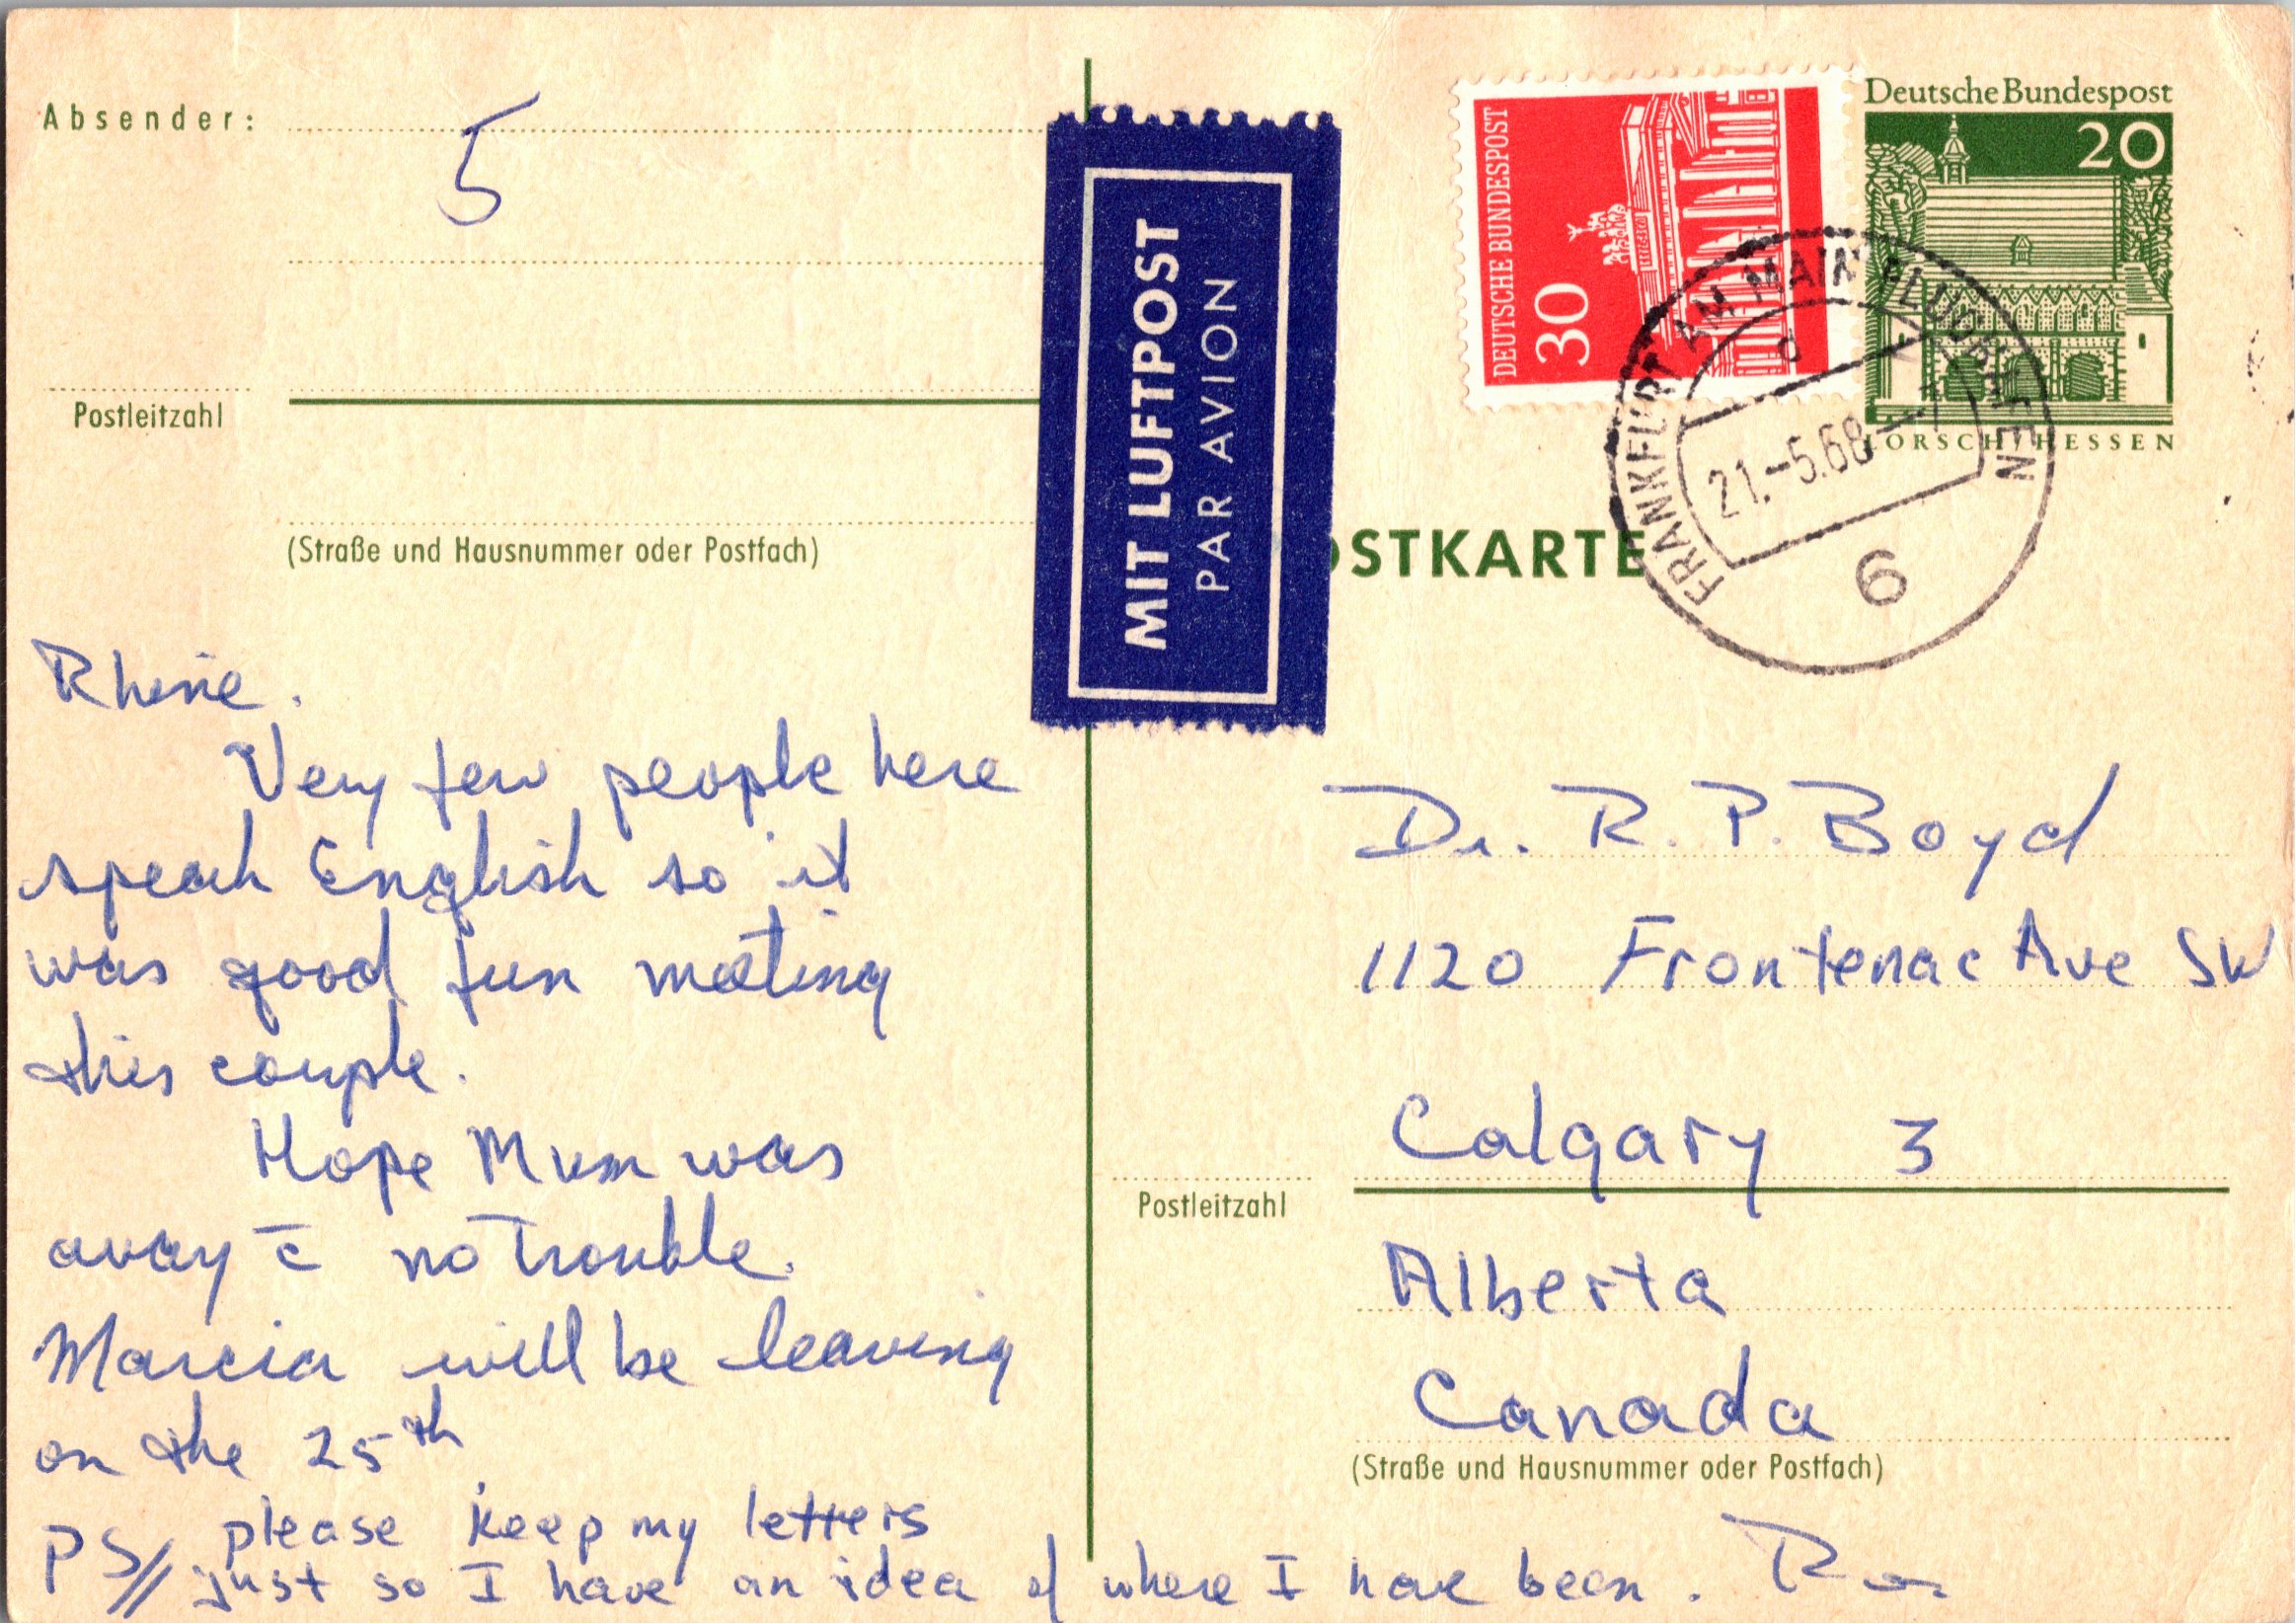 Absender:
5
Postleitzahl
(Straße und Hausnummer oder Postfach)
Rhine.
Very few people here
speak English so it
was good fun meeting
this couple.
Hope Mum was
away c̄ no trouble.
Marcia will be leaving
on the 25th
PS// please keep my letters
just so I have an idea of where I have been.
MIT LUFTPOST
PAR AVION
DEUTSCHE BUNDESPOST
30
Deutsche Bundespost
20
LORSCH/HESSEN
FRANKFURT AM MAIN FLUGHAFEN
d
21.-5.68
6
POSTKARTE
Dr. R. P. Boyd
1120 Frontenac Ave SW
Calgary 3
Postleitzahl
Alberta
Canada
(Straße und Hausnummer oder Postfach)